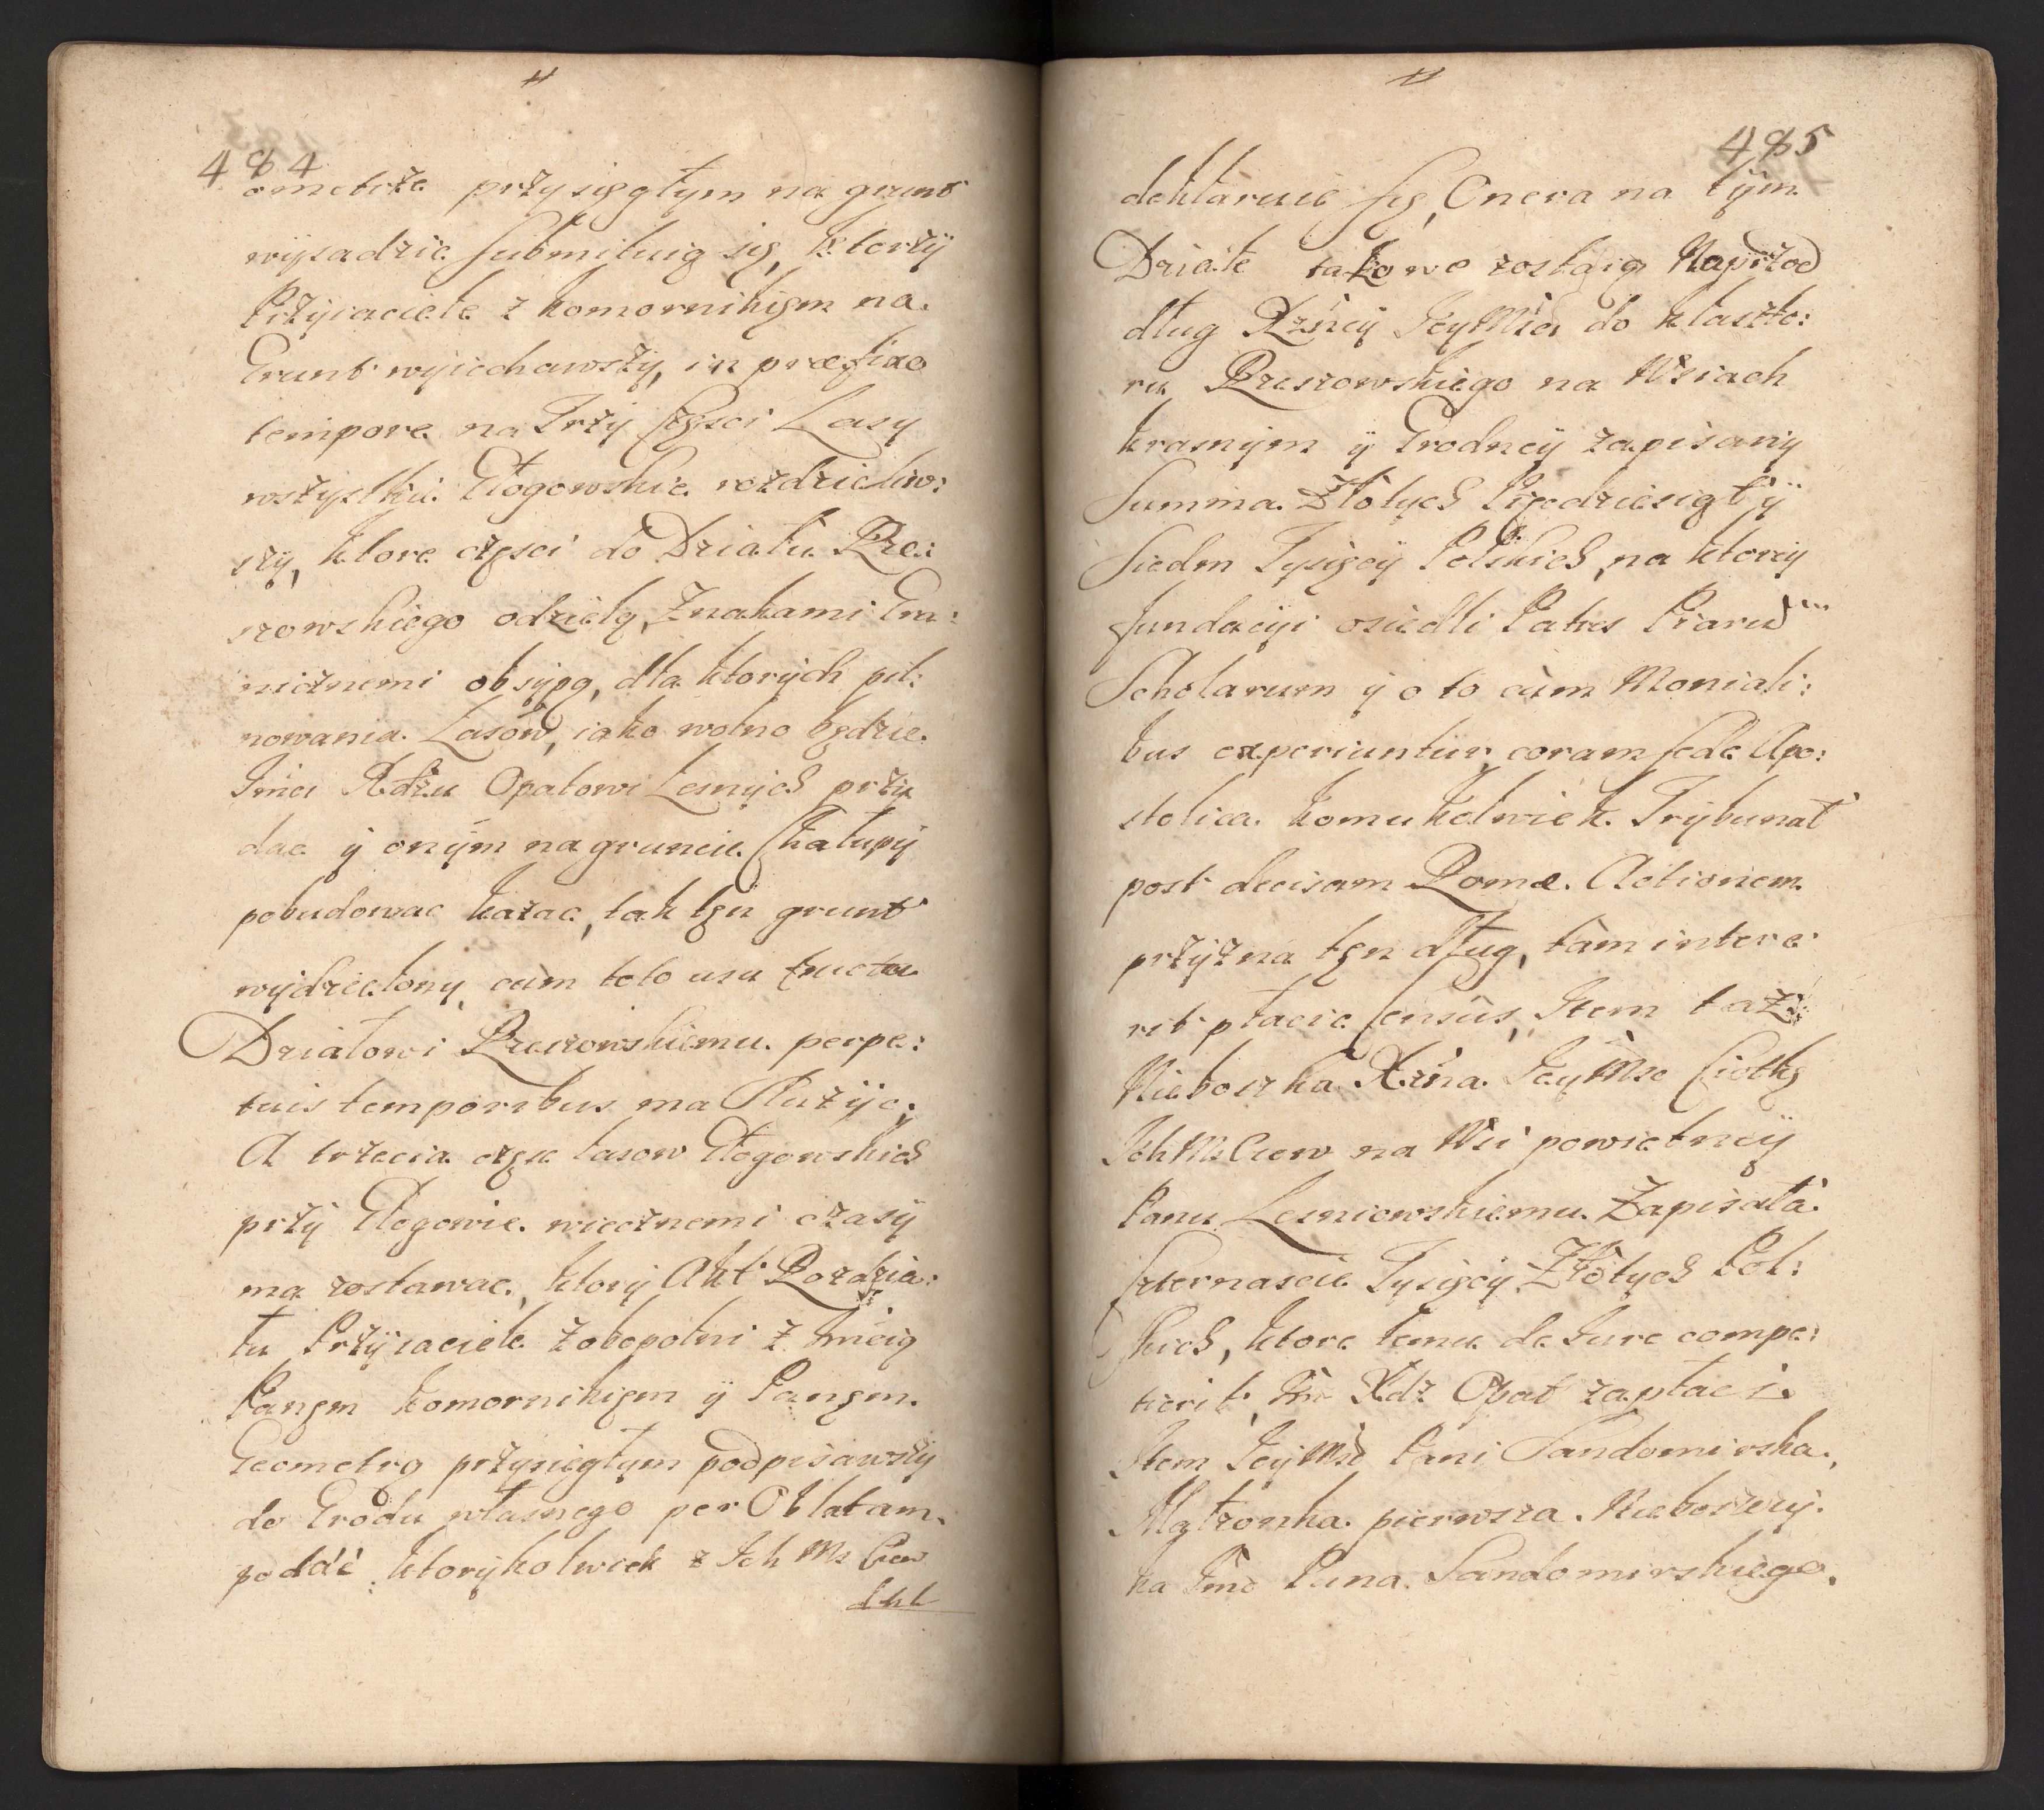 484
ometrże przysięgłym na grunt
wÿsadzic submituią się, ktorżÿ
Prżÿiaciele z komornikięm na
Grunt wÿiechawszÿ, in præfixo
tempore na Trżÿ Częsci Lasy
wszÿstkie Głogowskie rozdzieliw:
szÿ, ktore częsci do Działu Rze:
szowskiego odzielą, Znakami Gra:
nicznemi obsÿpą, dla ktorÿch pil:
nowania Lasów, iako wolno będzie
Jmci Xdzu Opatowi Lesnÿch prżÿ
dac ÿ onÿm na gruncie Chałupÿ
pobudowac kazac, tak tęn grunt
wÿdzielony cum toto usu fructu
Działowi Rzeszowskiemu perpe:
tuis temporibus ma służÿc;
A trżecia częsc lasow Głogowskich
prżÿ Głogowie wiecznemi czasÿ
ma zostawac, ktorÿ Akt Rozdzia:
łu Prżÿiaciele Zobopolni z Jmcią
Panęm komornikięm ÿ Panęm
Geometrą prżÿsięgłym podpisawszÿ
do Grodu własnego per Oblatam
poddć ktorÿkolwiek z Ich Mc Ciow
dekl
485
deklaruie się, Onera na tÿm
Dziale takowe zostaią Naprżod
dług Xznÿ JeyMci do klaszto:
ru Rzeszowskiego na Wsiach
krasnÿm ÿ Grodneÿ zapisany
Summa Złotych Pięcdziesiąt ÿ
siedm Tysięcÿ Polskich, na ktoreÿ
fundacÿi osiedli Patres Piarum
Scholarum ÿ o to cum Moniali:
bus experiuntur coram sede Apo:
stolica komukolwiek Trÿbunał
post decisam Romæ Actionem
prżÿzna tęn dług, tam intere
rit płacic Census, Item taż
Nieboszka Xzna JeyMsc Ciotka
Ich Mc Ciow na Wsi powietneÿ
Panu Lesniewskiemu Zapisała
Czternascie Tysięcÿ Złotych Pol:
skich, ktore temu de Jure compe:
tierit, Jmc Xdz Opat zapłaci.
Item JeÿMsc Pani Sandomirska,
Małżonka pierwsza Nieboszczÿ
ka Jmc Pana Sandomirskiego,